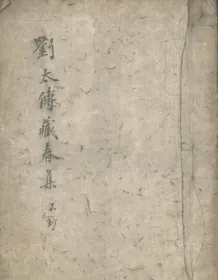 劉太傅藏春集